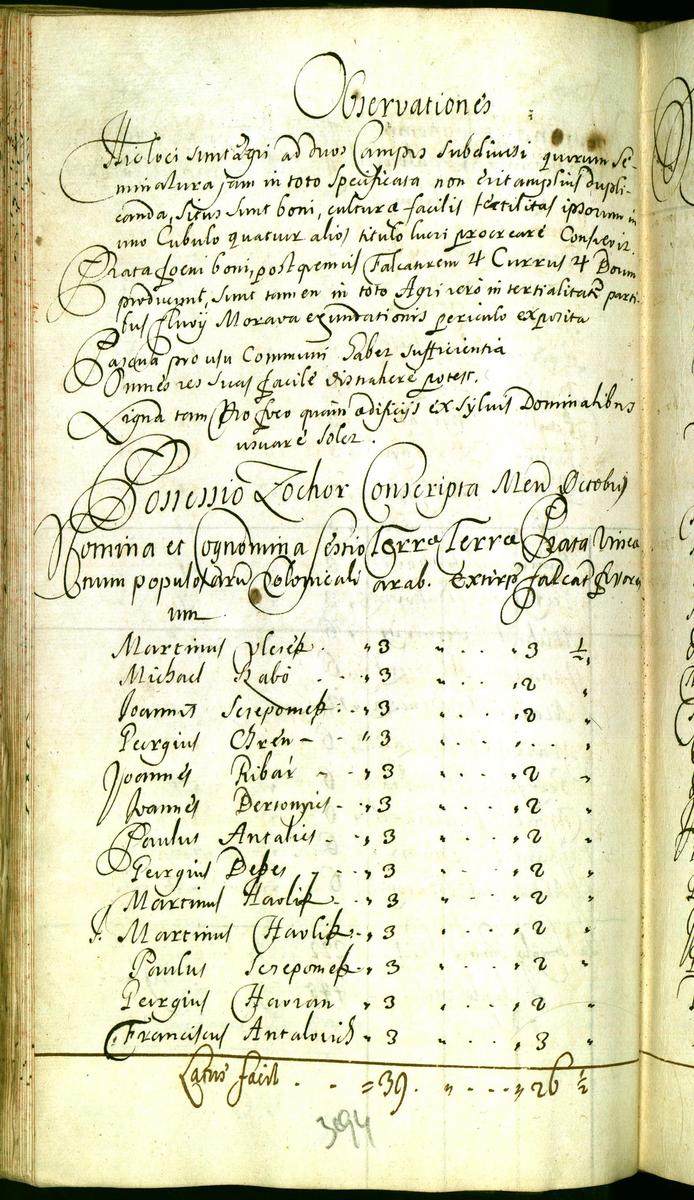 Observationes
Hic loci sunt agri ad duos Campos subdivisi quorum se-
minatura jam in toto specificata non erit amplius dupli-
canda, situs sunt boni, culturæ facilis fertilitas ipsorum in
uno Cubulo quatuor alios titulo lucri procreare Consvevit.
Prata foeni boni, post quemvis Falcatorem 4 Currus 4 Boum
producunt, sunt tamen in toto Agri vero in tertialitate parti-
bus fluvij Morava exundationis periculo exposita
Pascua pro usu Communi habet sufficientia
Omnes res suas facile distrahere potest.
Ligna tam Pro foco quam ædificijs ex sylvis Dominalibus
usuare solet.
Possessio Zochor Conscripta Men Octobris
Nomina et Cognomina Sessio Terræ Terræ Prata Vinea
tium populo Colonicali arab. Extirp falcat fivor
um
Martinus „ 3 „ . . . „ 3 ½
Michael Szabó . . „ 3 „ . . . „ 2 „
Joannes Screpomek . . „ 3 „ . . . „ 2 „
Georgius Chrén – „ 3 „ . . . „ . . „
Joannes Ribár – . „ 3 „ . . . „ 2 „
Joannes – . „ 3 „ . . . „ 2 „
Paulus Antalics – . „ 3 „ . . . „ 2 „
Georgius Depes – . „ 3 „ . . . „ 2 „
Martinus Havlik – . „ 3 „ . . . „ 2 „
J. Martinus Havlik . „ 3 „ . . . „ 2 „
Paulus Screpomek . „ 3 „ . . . „ 2 „
Georgius Havran „ 3 „ . . . „ 2 „
Franciscus Antalovich „ 3 „ . . . „ 3 „
Latus facit . . = 39 . „ . . . „ 26 ½
394